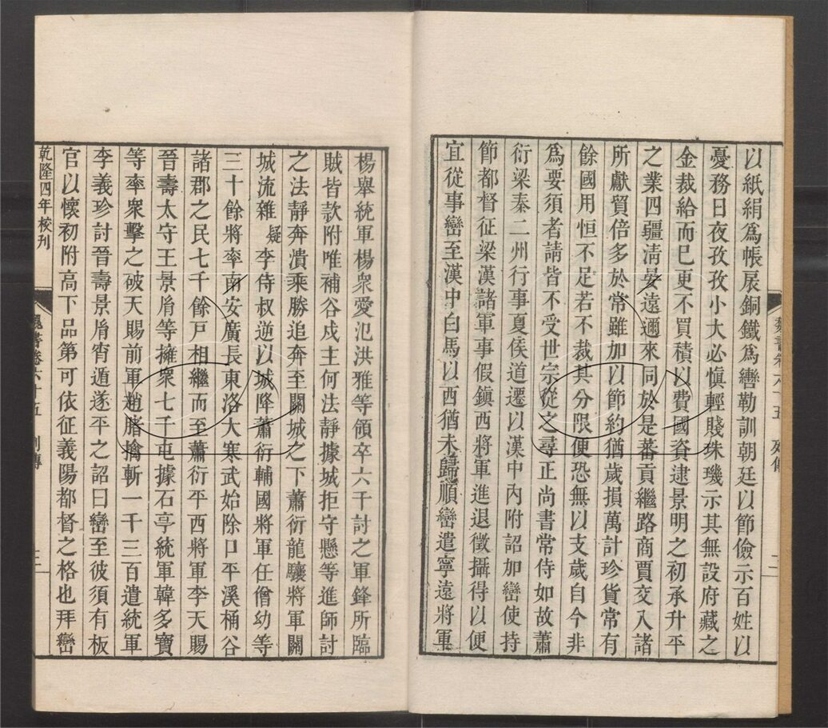 以紙絹爲帳扆銅鐵爲轡勒訓朝廷以節儉示百姓以
憂務日夜孜孜小大必愼輕賤珠璣示其無設府藏之
金裁給而已更不買積以費國資逮景明之初承升平
之業四疆淸晏遠邇來同於是蕃貢繼路商賈交入諸
所獻貿倍多於常雖加以節約猶歲損萬計珍貨常有
餘國用恒不足若不裁其分限便恐無以支歲自今非
爲要須者請皆不受世宗從之尋正尚書常侍如故蕭
衍梁秦二州行事夏侯道遷以漢中內附詔加巒使持
節都督征梁漢諸軍事假鎭西將軍進退徵攝得以便
宜從事巒至漢中白馬以西猶未歸順巒遣寧遠將軍
楊舉統軍楊衆愛氾洪雅等領卒六千討之軍鋒所臨
賊皆款附唯補谷戍主何法靜據城拒守懸等進師討
之法靜奔潰乘勝追奔至關城之下蕭衍龍驤將軍關
城流雜疑李侍叔逆以城降蕭衍輔國將軍任僧幼等
三十餘將率南安廣長東洛大寒武始除口平溪桶谷
諸郡之民七千餘戸相繼而至蕭衍平西將軍李天賜
晉壽太守王景胤等擁衆七千屯據石亭統軍韓多寶
等率衆擊之破天賜前軍趙𦡱擒斬一千三百遣統軍
李義珍討晉壽景胤宵遁遂平之詔曰巒至彼須有板
官以懷初附高下品第可依征義陽都督之格也拜巒
乾隆四年校刊
魏書卷六十五 列傳
三